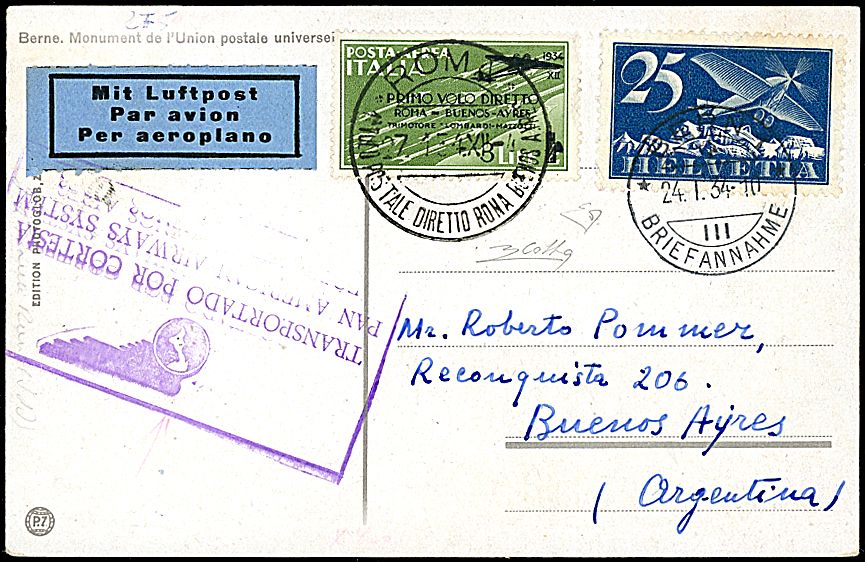 Berne. Monument de l'Union postale universel
Mit Luftpost
Par avion
Per aeroplano
POSTA AEREA
ITALIA
1934
XII
PRIMO VOLO DIRETTO
ROMA = BUENOS-AYRES
TRIMOTORE "LOMBARDI-MAZZOTTI"
ROMA
POSTALE DIRETTO ROMA BUENOS
25
HELVETIA
24. I. 34-10
III
BRIEFANNAHME
EDITION PHOTOGLOB, Z
TRANSPORTADO POR CORTESIA
PAN AMERICAN AIRWAYS SYSTEM
Mr. Roberto Pommer,
Reconquista 206.
Buenos Ayres
(Argentina)
P.Z